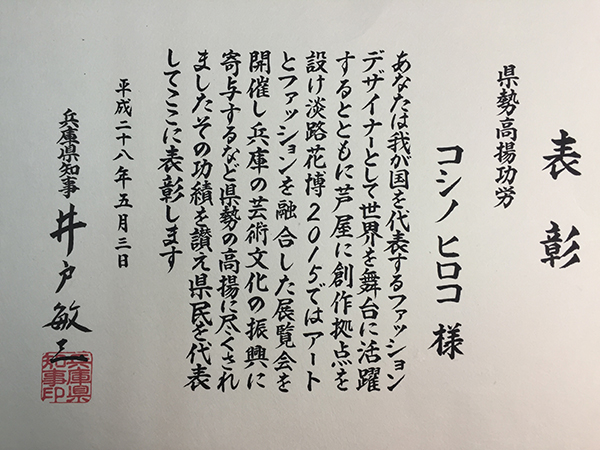 表彰
県勢高揚功労
コシノ ヒロコ 様
あなたは我が国を代表するファッション
デザイナーとして世界を舞台に活躍
するとともに芦屋に創作拠点を
設け淡路花博2015ではアート
とファッションを融合した展覧会を
開催し兵庫の芸術文化の振興に
寄与するなど県勢の高揚に尽くされ
ましたその功績を讃え県民を代表
してここに表彰します
平成二十八年五月三日
兵庫県知事 井戸敏三
兵庫県
知事印